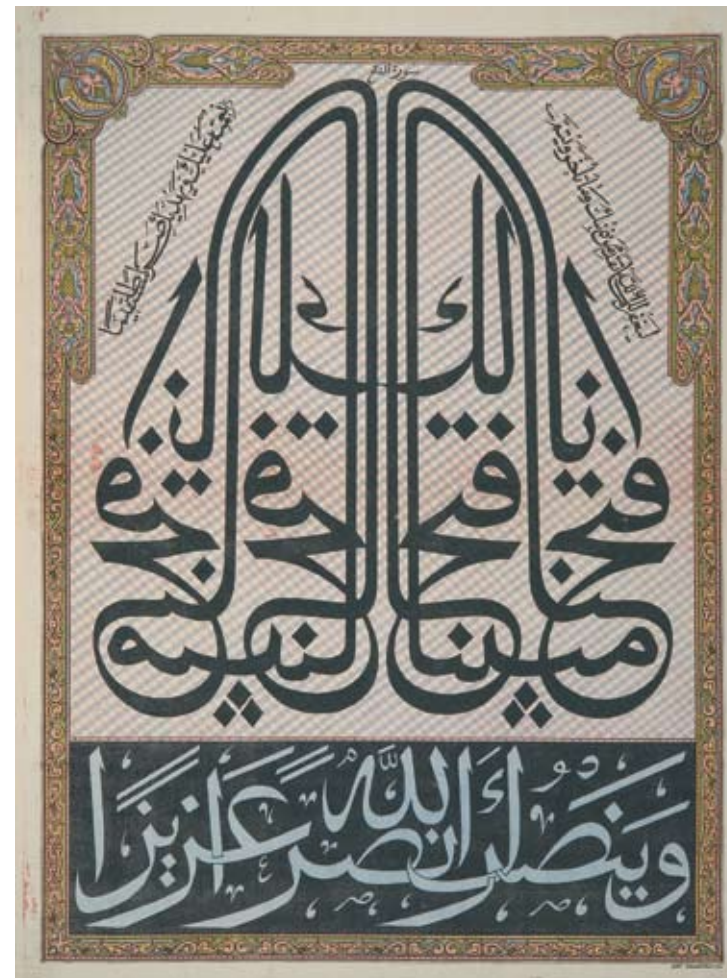 سورة الفتح
إنا فتحنا لك فتحا مبينا
ليغفر لك الله ما تقدم من ذنبك وما تأخر ويتم
نعمته عليك ويهديك صراطا مستقيما
وَيَنْصُرَكَ اللَّهُ نَصْرًا عَزِيزًا